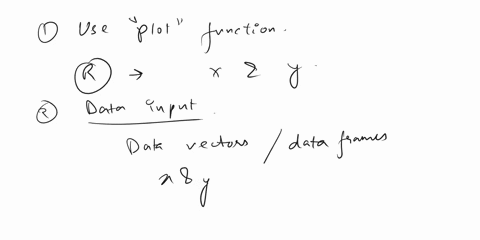 ① Use "plot" function.
R → x & y.
② Data input.
Data vectors / data frames
x & y